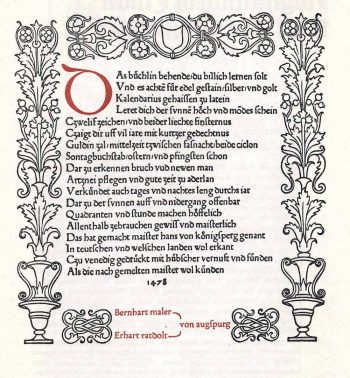 Das bůchlin behende du billich lernen solt
Vnd es achtē für edel gestain / silber vnd golt
Kalendarius gehaissen zu latein
Leret dich der sunnē hőch vnd mődes schein
Czwelf zeichen / vnd beider liechte finsternus
Czaigt dir uff vil iare mit kurtzer gedechtnus
Guldin zal: mittelzeit tzwischen fasnacht / beide ciclon
Sontagbuchstab / ostern / vnd pfingsten schon
Dar zu erkennen bruch vnd newen man
Artznei pflegen vnd gute zeit zu aderlan
Verkündet auch tages vnd nachtes leng durchs iar
Dar zu der sunnen auff vnd nidergang offenbar
Quadranten vnd stunde machen hőffelich
Allenthalb zebrauchen gewiss vnd maisterlich
Das hat gemacht maister hans von kőnigsperg genant
In teutschen vnd welschen landen wol erkant
Czu venedig gedrückt mit hübscher vernuft vnd sünden
Als die nach gemelten maister wol künden
1478
Bernhart maler
von augspurg
Erhart ratdolt